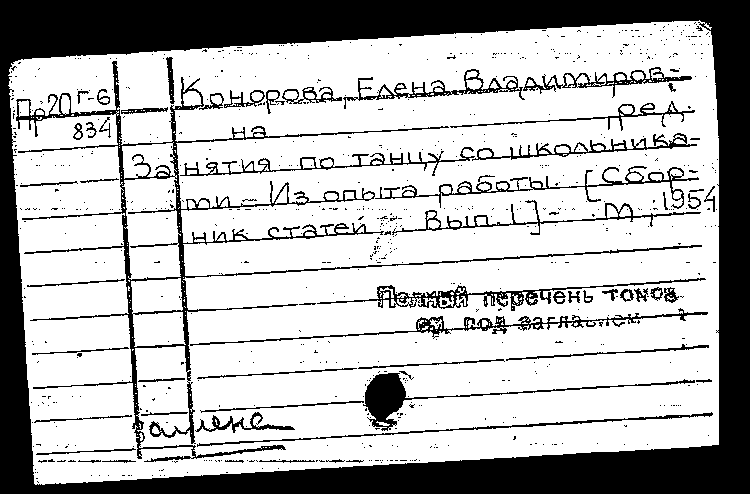 Пр20 Г-6
834
Конорова, Елена Владимиров-
на ред.
Занятия по танцу со школьника-
ми - Из опыта работы. [Сбор-
ник статей. Вып. 1] - М., 1954
Полный перечень томов
см. под заглавием
замена